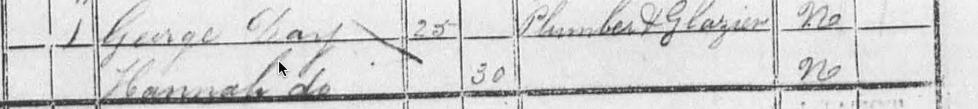 1 George Day 25 Plumber & Glazier No
Hannah do 30 No